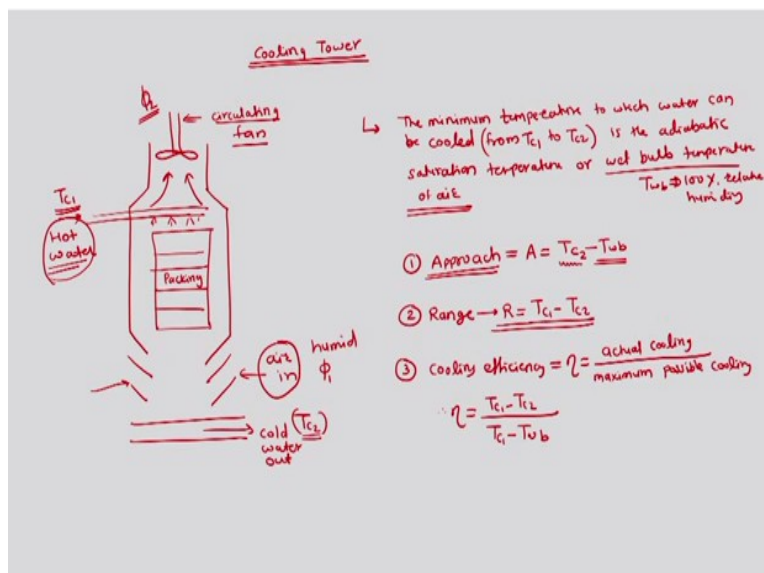 Cooling Tower
ϕ2
circulating
fan
Tc1
Hot
water
Packing
air
in
humid
ϕ1
cold (Tc2)
water
out
↳ The minimum temperature to which water can
be cooled (from Tc1 to Tc2) is the adiabatic
saturation temperature or wet bulb temperature
of air
Twb ⇒ 100%. relative
humidity
① Approach = A = Tc2 - Twb
② Range → R = Tc1 - Tc2
③ Cooling efficiency = η = actual cooling / maximum possible cooling
η = Tc1 - Tc2 / Tc1 - Twb